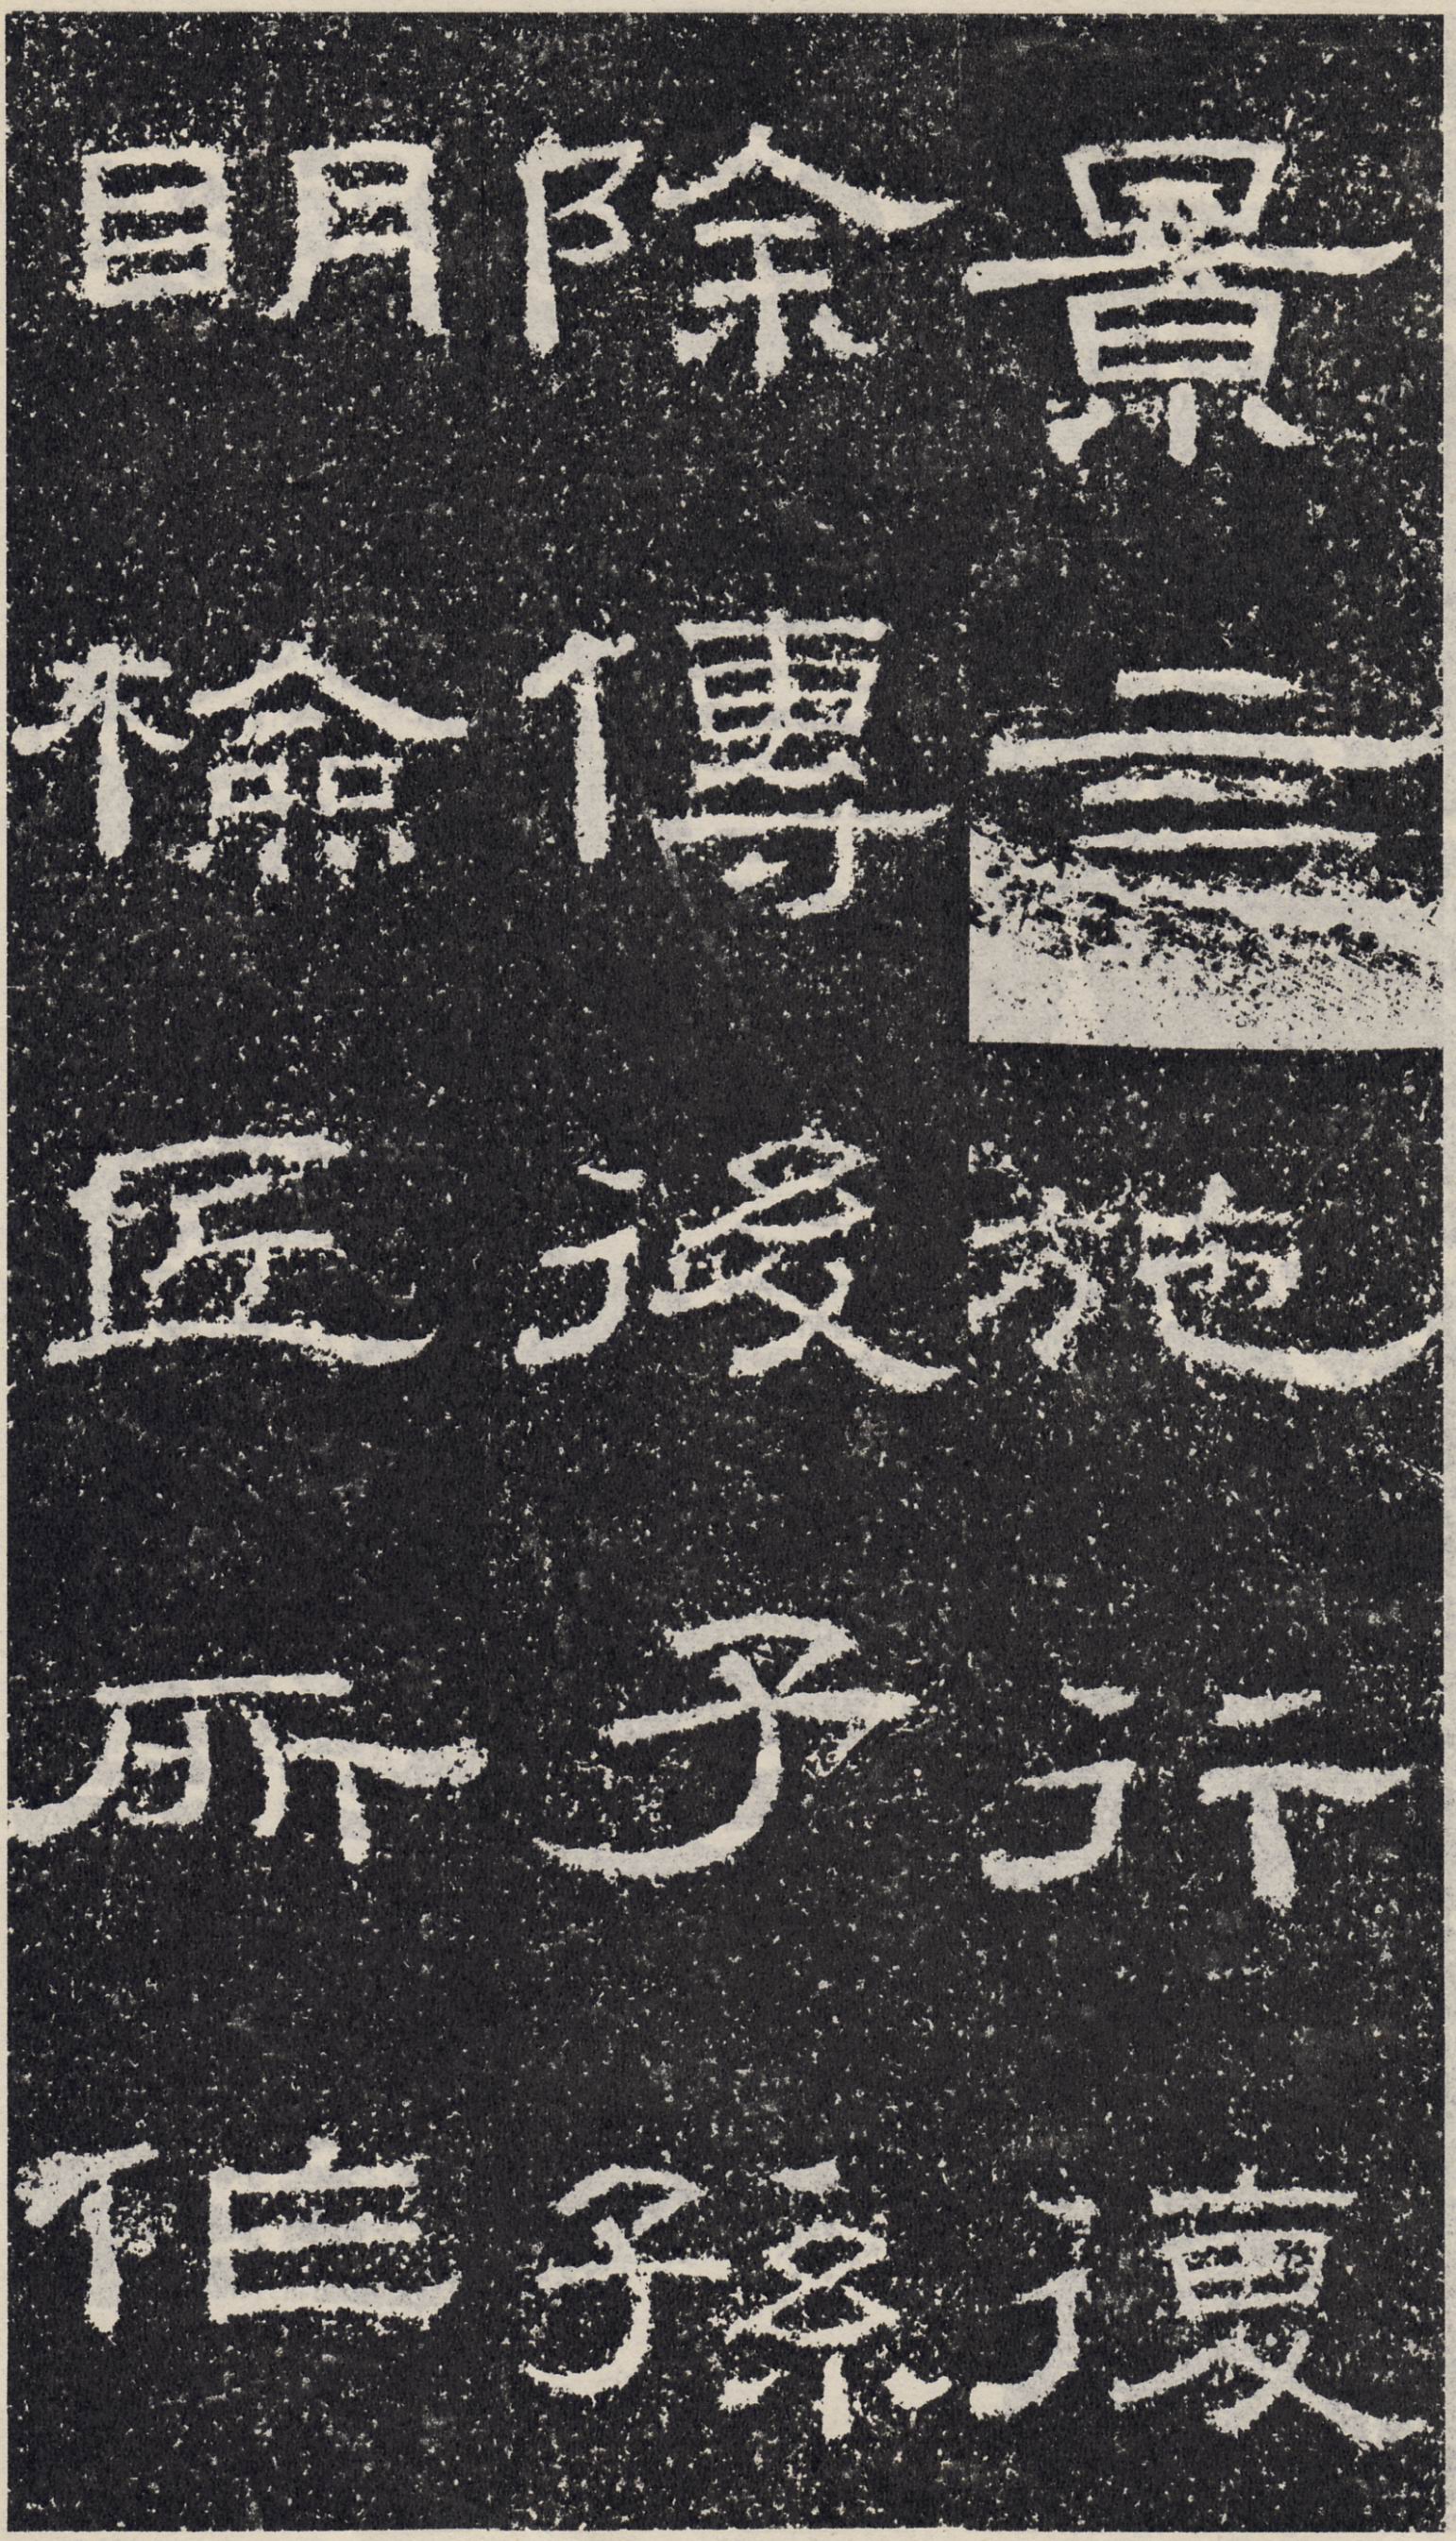 景言施行復
除傳後子孫
明檢匠所作